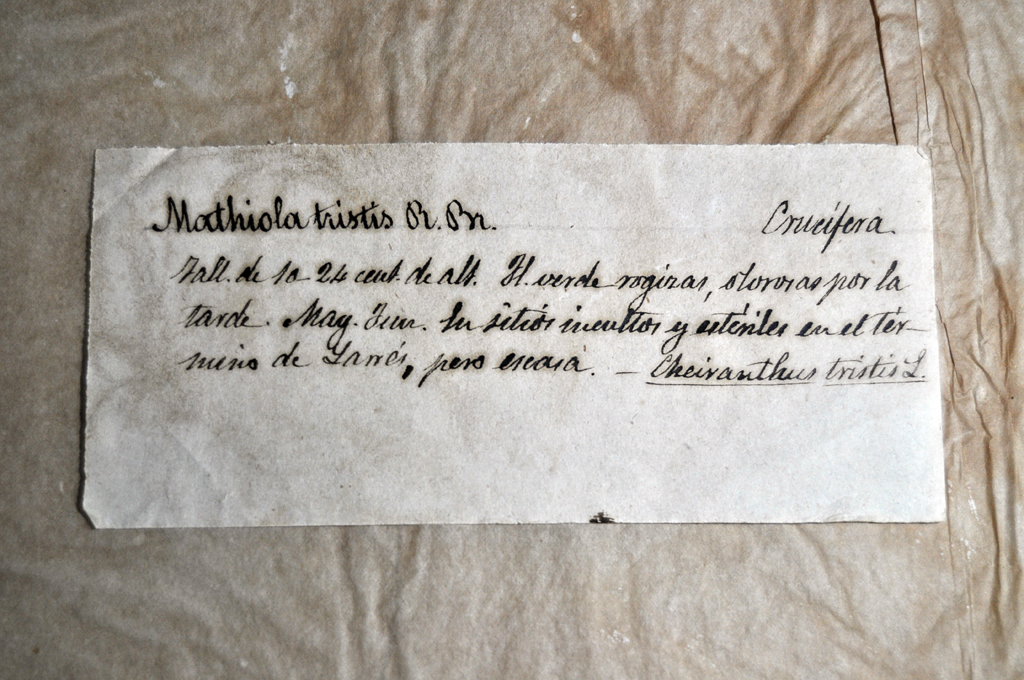 Mathiola tristis R. Br. Crucífera.
Tall. de 10 a 24 cent. de alt. Fl. verde rogizas, olorosas por la
tarde. May. Jun. En sitiós incultos y estériles en el tér-
mino de Larrés, pero escasa. — Cheiranthus tristis L.